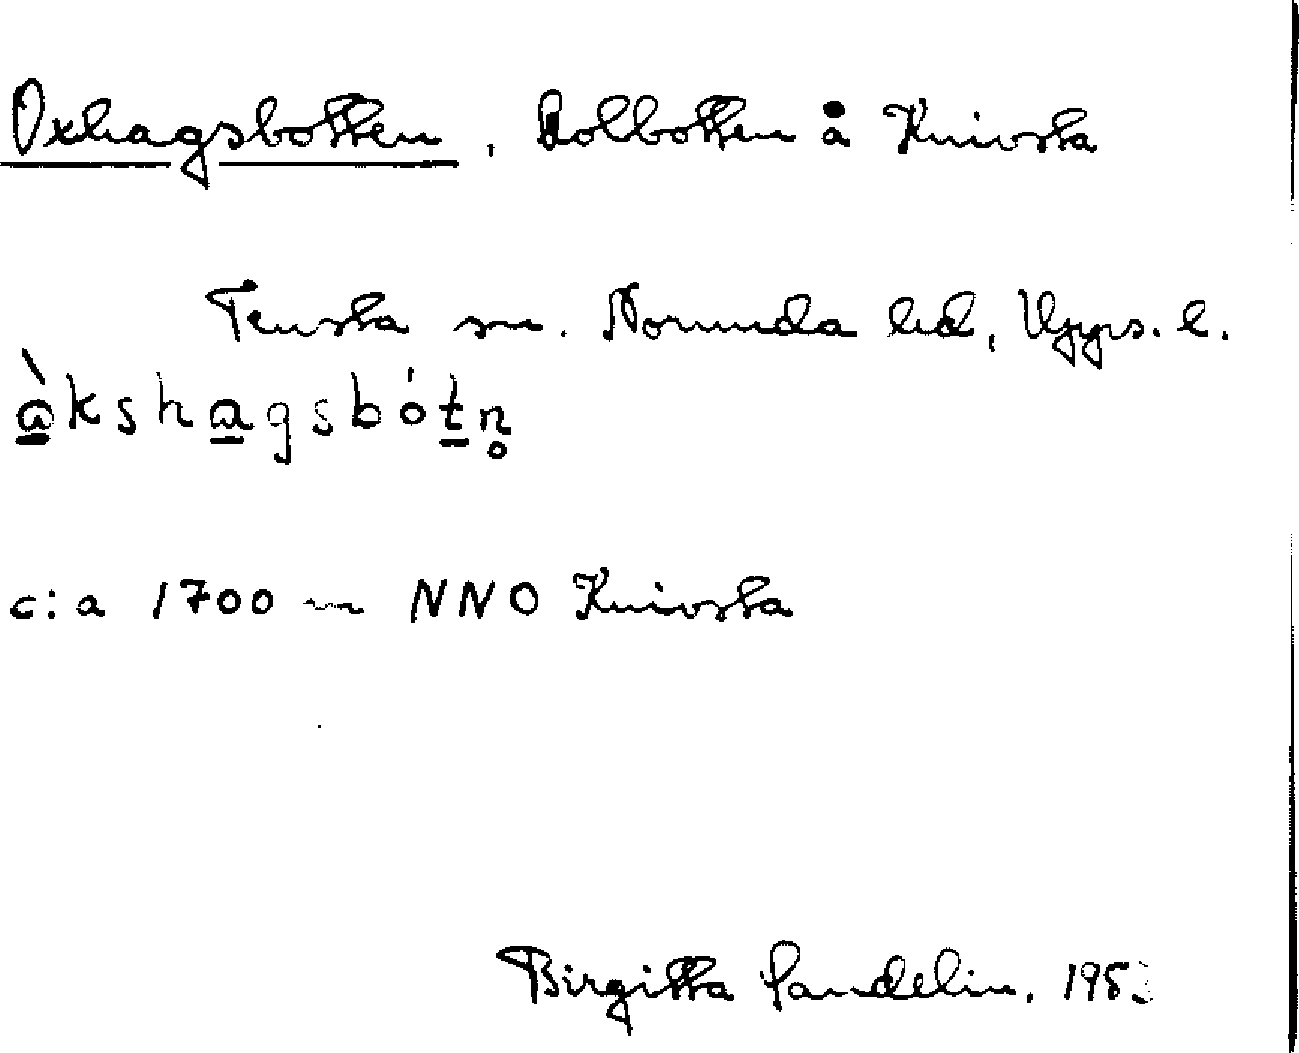 Oxhagsbotten, Kolbotten å Knivsta
Tensta sn. Norunda hd, Upps. l.
àkshagsbótn̥
c:a 1700 m NNO Knivsta
Birgitta Sandelin.